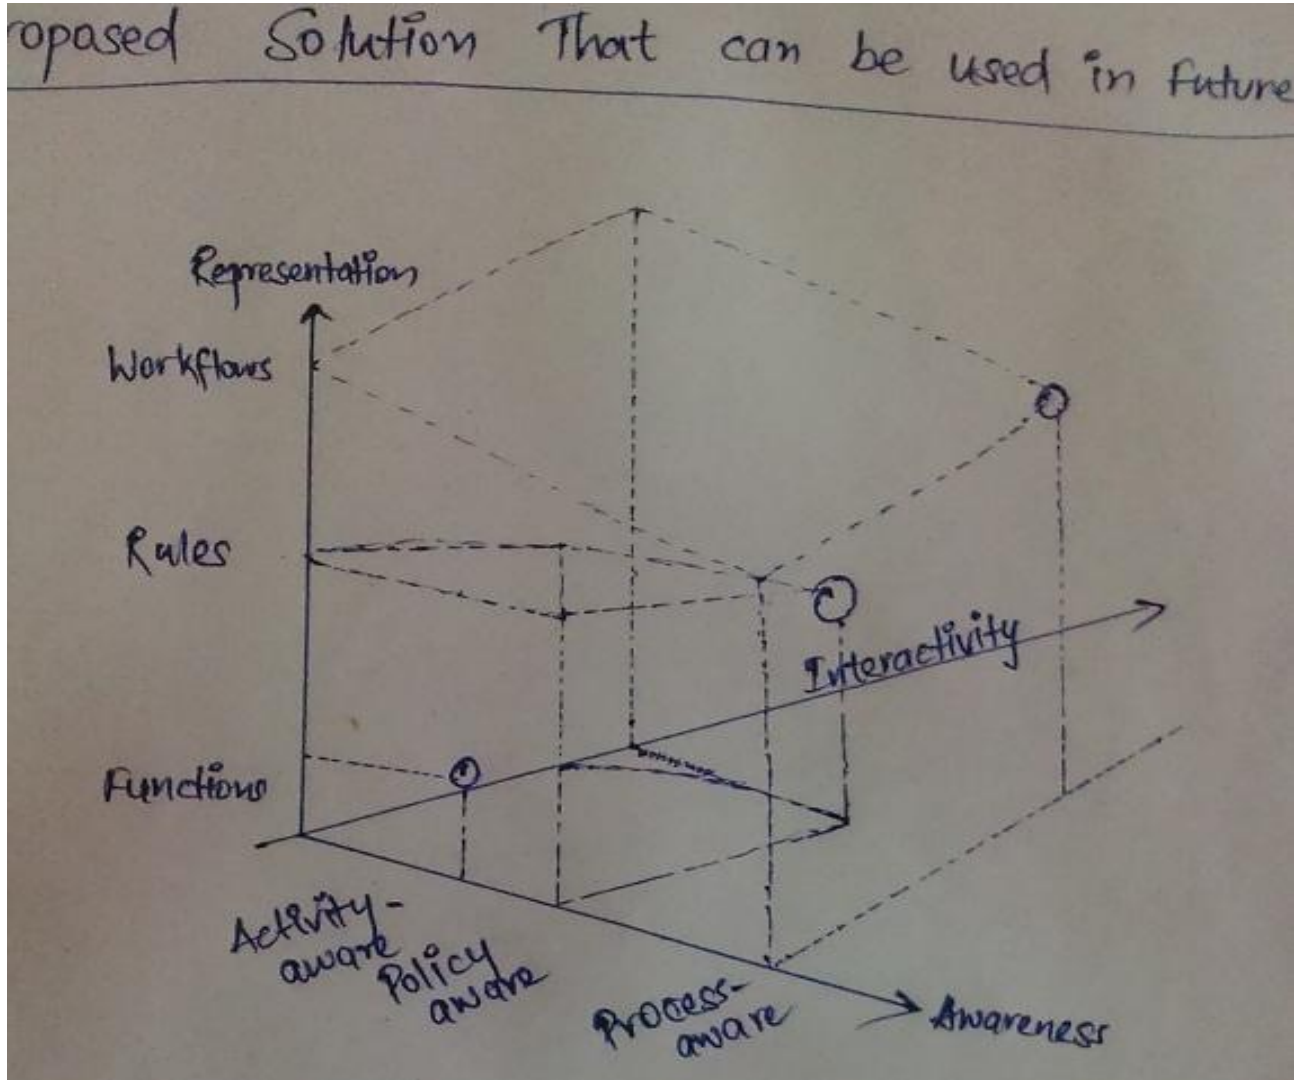 ropased Solution That can be used in future
Representation
Workflows
Rules
Interactivity
Functions
Activity-
aware
Policy
aware
Process-
aware
Awareness